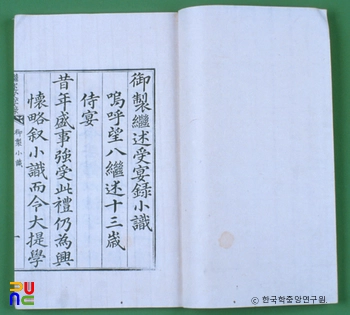 御製繼述受宴録小識
嗚呼望八繼述十三歲
侍宴
昔年盛事強受此禮仍為興
懷略叙小識而令大提學
御製小識
一
ⓒ 한국학중앙연구원